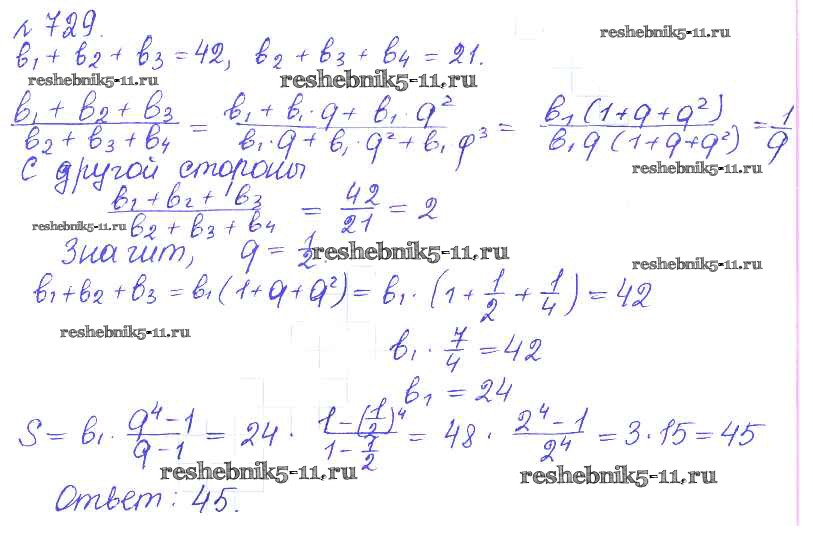 № 729.
reshebnik5-11.ru
b₁ + b₂ + b₃ = 42, b₂ + b₃ + b₄ = 21.
reshebnik5-11.ru reshebnik5-11.ru
(b₁ + b₂ + b₃)/(b₂ + b₃ + b₄) = (b₁ + b₁·q + b₁·q²)/(b₁·q + b₁·q² + b₁q³) = (b₁(1+q+q²))/(b₁q(1+q+q²)) = 1/q
С другой стороны
reshebnik5-11.ru
(b₁ + b₂ + b₃)/(b₂ + b₃ + b₄) = 42/21 = 2
reshebnik5-11.ru
Значит, q = 1/2.
reshebnik5-11.ru
reshebnik5-11.ru
b₁+b₂+b₃ = b₁(1+q+q²) = b₁·(1 + 1/2 + 1/4) = 42
reshebnik5-11.ru
b₁ · 7/4 = 42
b₁ = 24
S = b₁ · (q⁴-1)/(q-1) = 24 · (1-(1/2)⁴)/(1-1/2) = 48 · (2⁴-1)/2⁴ = 3·15 = 45
reshebnik5-11.ru reshebnik5-11.ru
Ответ: 45.